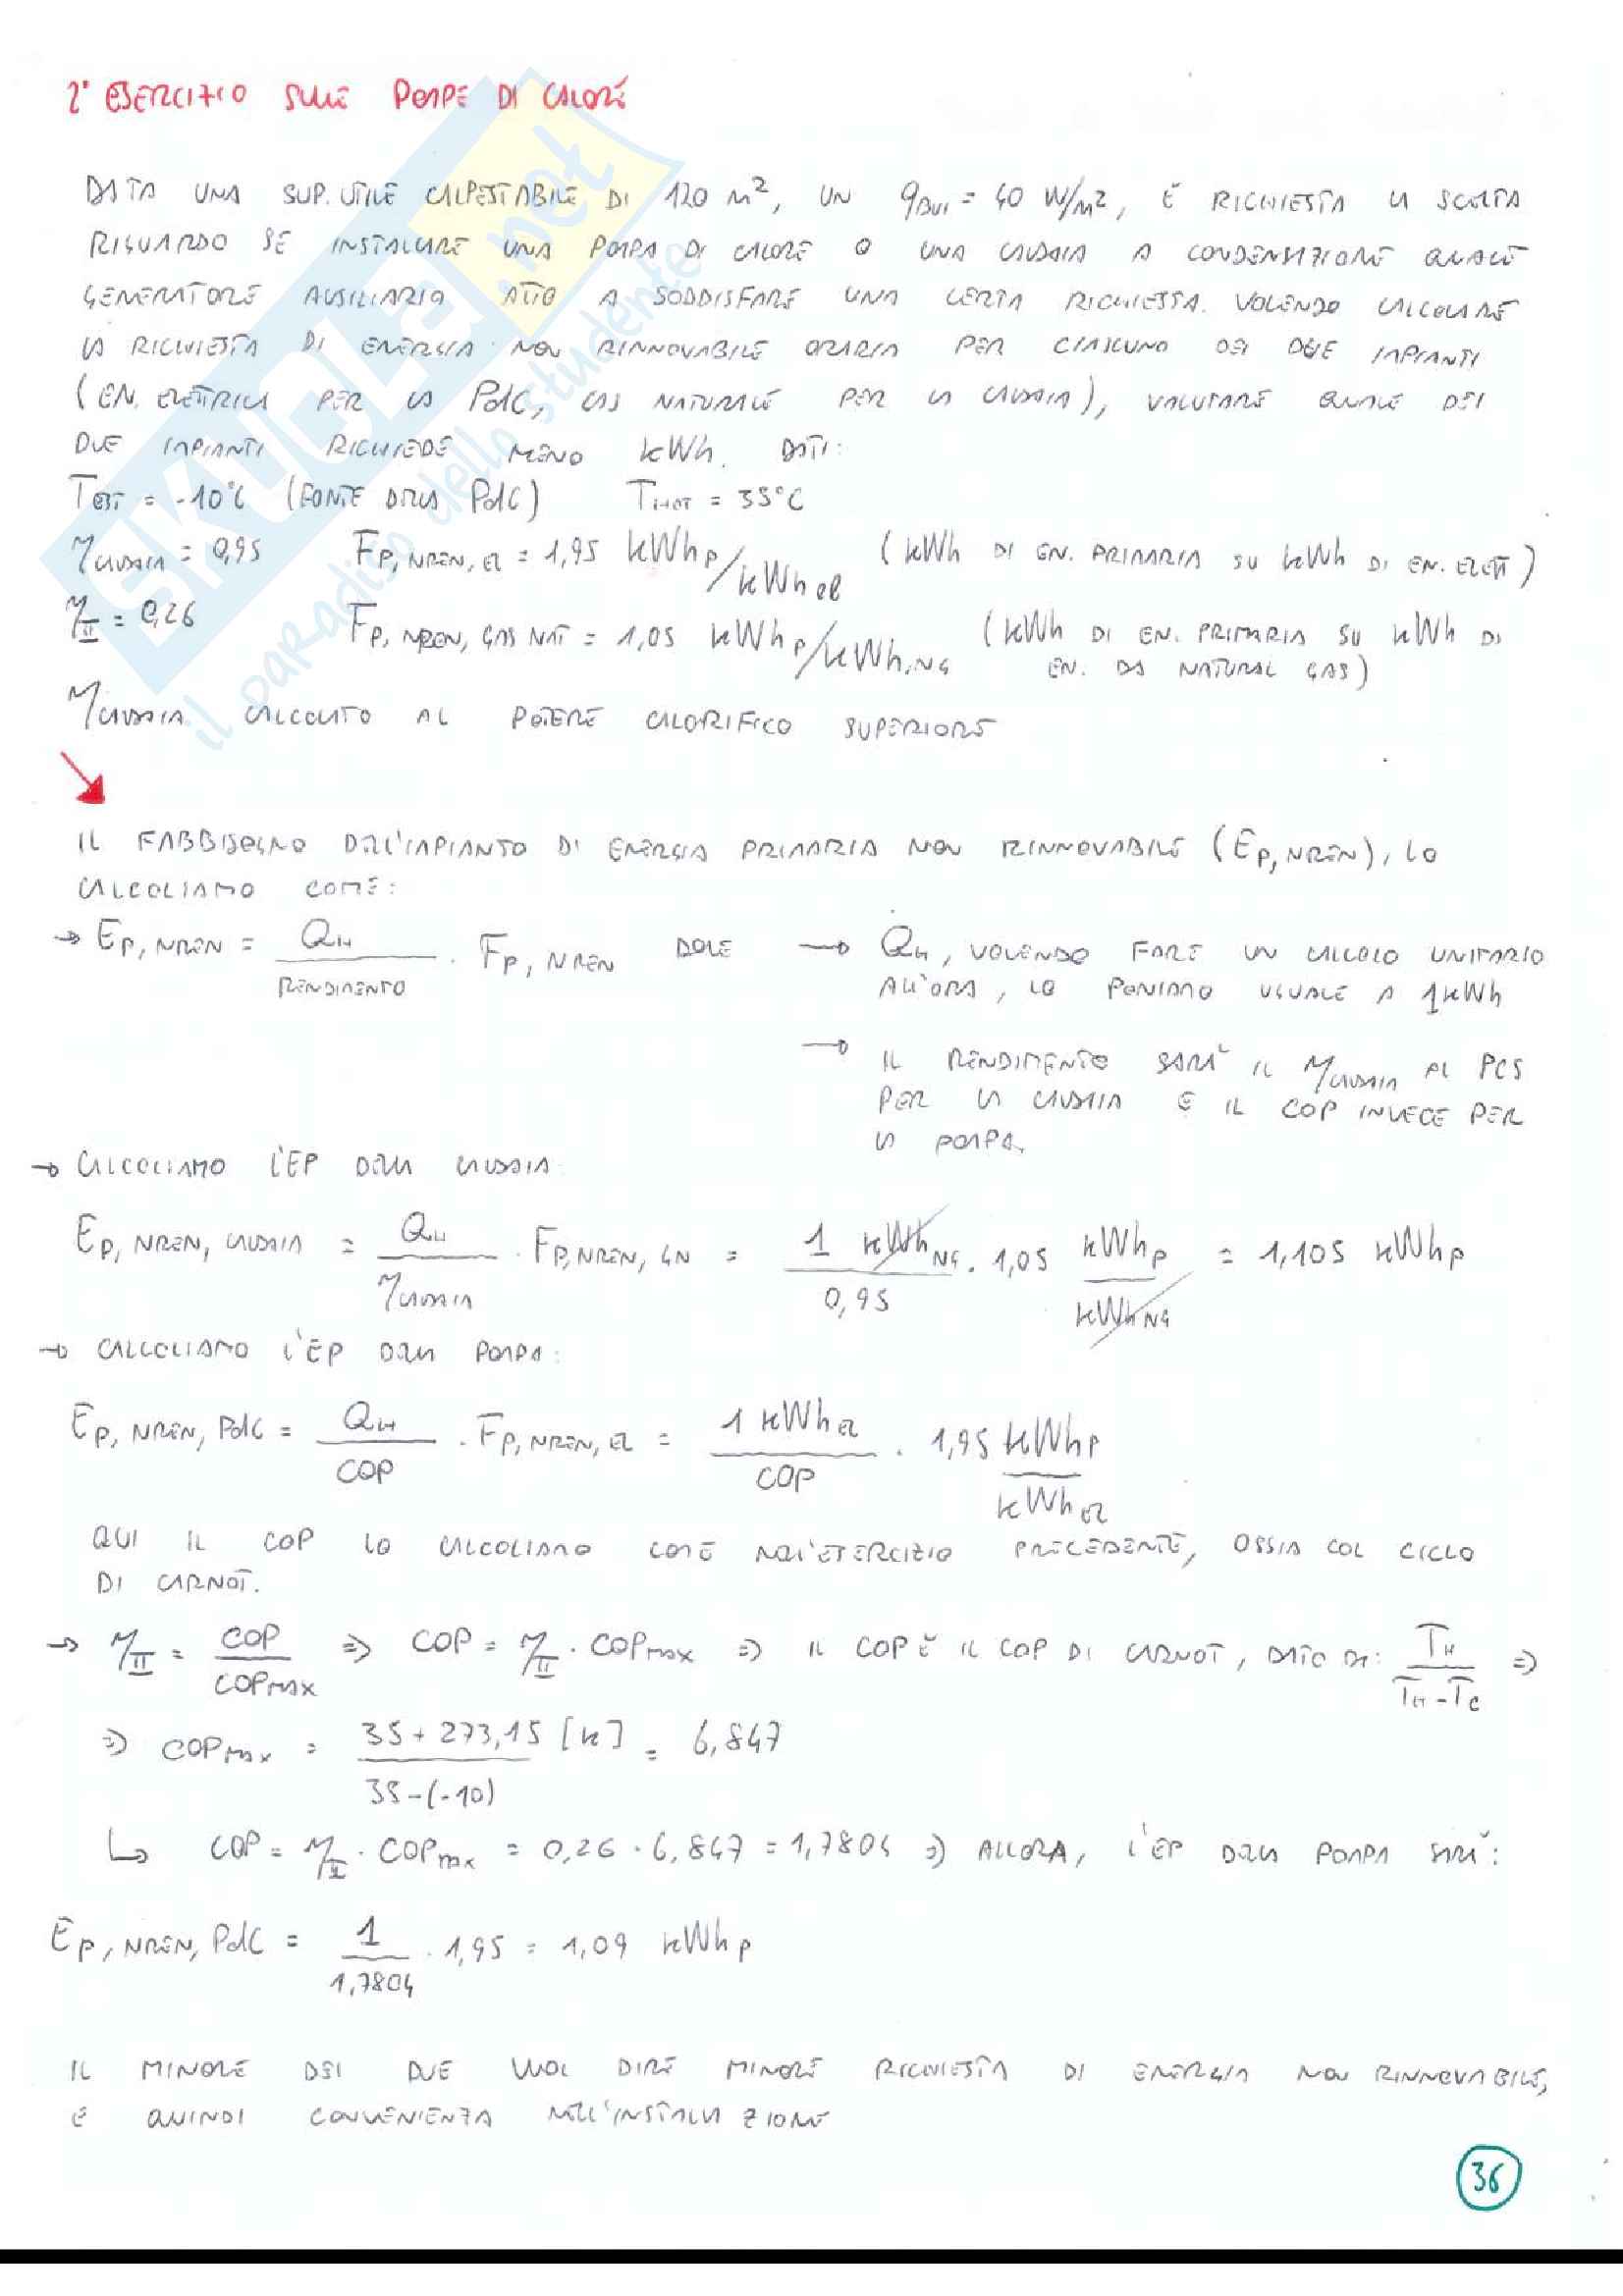 2° ESERCIZIO SULLE POMPE DI CALORE
DATA UNA SUP. UTILE CALPESTABILE DI 120 m², UN qBUI = 40 W/m², È RICHIESTA LA SCELTA
RIGUARDO SE INSTALLARE UNA POMPA DI CALORE O UNA CALDAIA A CONDENSAZIONE QUALE
GENERATORE AUSILIARIO ATTO A SODDISFARE UNA CERTA RICHIESTA. VOLENDO CALCOLARE
LA RICHIESTA DI ENERGIA NON RINNOVABILE ORARIA PER CIASCUNO DEI DUE IMPIANTI
(EN. ELETTRICA PER LA PdC, GAS NATURALE PER LA CALDAIA), VALUTARE QUALE DEI
DUE IMPIANTI RICHIEDE MENO kWh. DATI:
TEST = -10°C (FONTE DELLA PdC) THOT = 35°C
ηCALDAIA = 0,95 FP, NREN, EL = 1,95 kWhP/kWhel (kWh DI EN. PRIMARIA SU kWh DI EN. ELETT)
ηII = 0,26 FP, NREN, GAS NAT = 1,05 kWhP/kWh,NG (kWh DI EN. PRIMARIA SU kWh DI
EN. DA NATURAL GAS)
ηCALDAIA CALCOLATO AL POTERE CALORIFICO SUPERIORE
IL FABBISOGNO DELL'IMPIANTO DI ENERGIA PRIMARIA NON RINNOVABILE (EP, NREN), LO
CALCOLIAMO COME:
→ EP, NREN = QH / RENDIMENTO · FP, NREN DOVE → QH, VOLENDO FARE UN CALCOLO UNITARIO
ALL'ORA, LO PONIAMO UGUALE A 1kWh
→ IL RENDIMENTO SARÀ IL ηCALDAIA AL PCS
PER LA CALDAIA E IL COP INVECE PER
LA POMPA.
→ CALCOLIAMO L'EP DELLA CALDAIA
EP, NREN, CALDAIA = QH / ηCALDAIA · FP,NREN, GN = 1 kWhNG / 0,95 · 1,05 kWhP / kWhNG = 1,105 kWhP
→ CALCOLIAMO L'EP DELLA POMPA:
EP, NREN, PdC = QH / COP · FP, NREN, EL = 1 kWhEL / COP · 1,95 kWhP / kWhEL
QUI IL COP LO CALCOLIAMO COME NELL'ESERCIZIO PRECEDENTE, OSSIA COL CICLO
DI CARNOT.
→ ηII = COP / COPMAX ⇒ COP = ηII · COPMAX ⇒ IL COP È IL COP DI CARNOT, DATO DA: TH / TH - TC ⇒
⇒ COPMAX = 35 + 273,15 [K] / 35 - (-10) = 6,847
↳ COP = ηII · COPMAX = 0,26 · 6,847 = 1,7804 ⇒ ALLORA, L'EP DELLA POMPA SARÀ:
EP, NREN, PdC = 1 / 1,7804 · 1,95 = 1,09 kWhP
IL MINORE DEI DUE VUOL DIRE MINORE RICHIESTA DI ENERGIA NON RINNOVABILE,
E QUINDI CONVENIENZA NELL'INSTALLAZIONE
36
SKUOLa.net
il paradiso dello studente